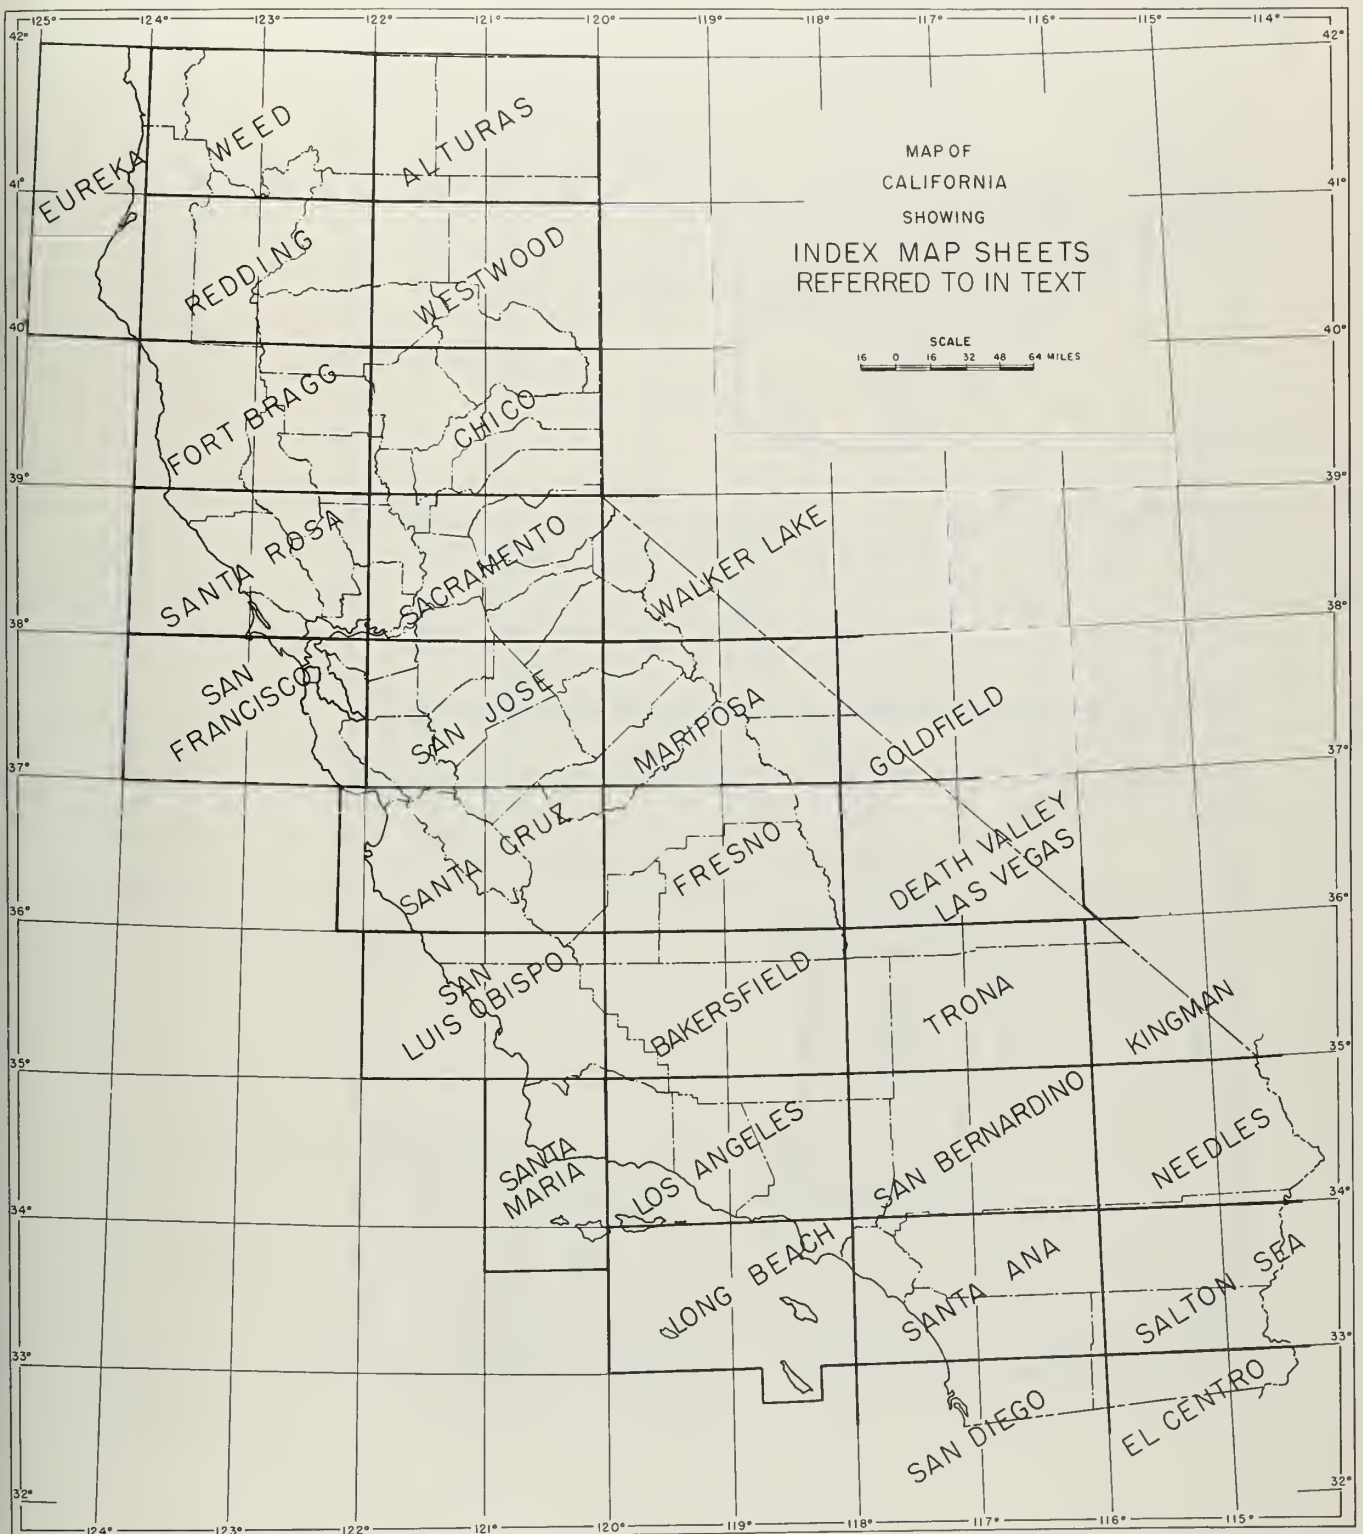 125° 124° 123° 122° 121° 120° 119° 118° 117° 116° 115° 114°
42° 42°
MAP OF
CALIFORNIA
SHOWING
INDEX MAP SHEETS
REFERRED TO IN TEXT
SCALE
16 0 16 32 48 64 MILES
WEED
ALTURAS
EUREKA
41° 41°
REDDING
WESTWOOD
40° 40°
FORT BRAGG
CHICO
39° 39°
SANTA ROSA
SACRAMENTO
WALKER LAKE
38° 38°
SAN
FRANCISCO
SAN JOSE
MARIPOSA
GOLDFIELD
37° 37°
SANTA CRUZ
FRESNO
DEATH VALLEY
LAS VEGAS
36° 36°
SAN
LUIS OBISPO
BAKERSFIELD
TRONA
KINGMAN
35° 35°
SANTA
MARIA
LOS ANGELES
SAN BERNARDINO
NEEDLES
34° 34°
LONG BEACH
SANTA ANA
SALTON SEA
33° 33°
SAN DIEGO
EL CENTRO
32° 32°
124° 123° 122° 121° 120° 119° 118° 117° 116° 115°